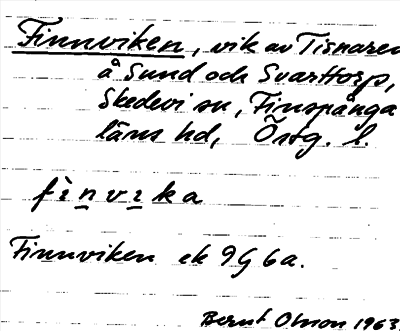 Finnviken, vik av Tisnaren
å Sund och Svarttorp,
Skedevi sn, Finspånga
läns hd, Östg. l.
fìnvika
Finnviken ek 9G 6a.
Bernt Olsson 1963